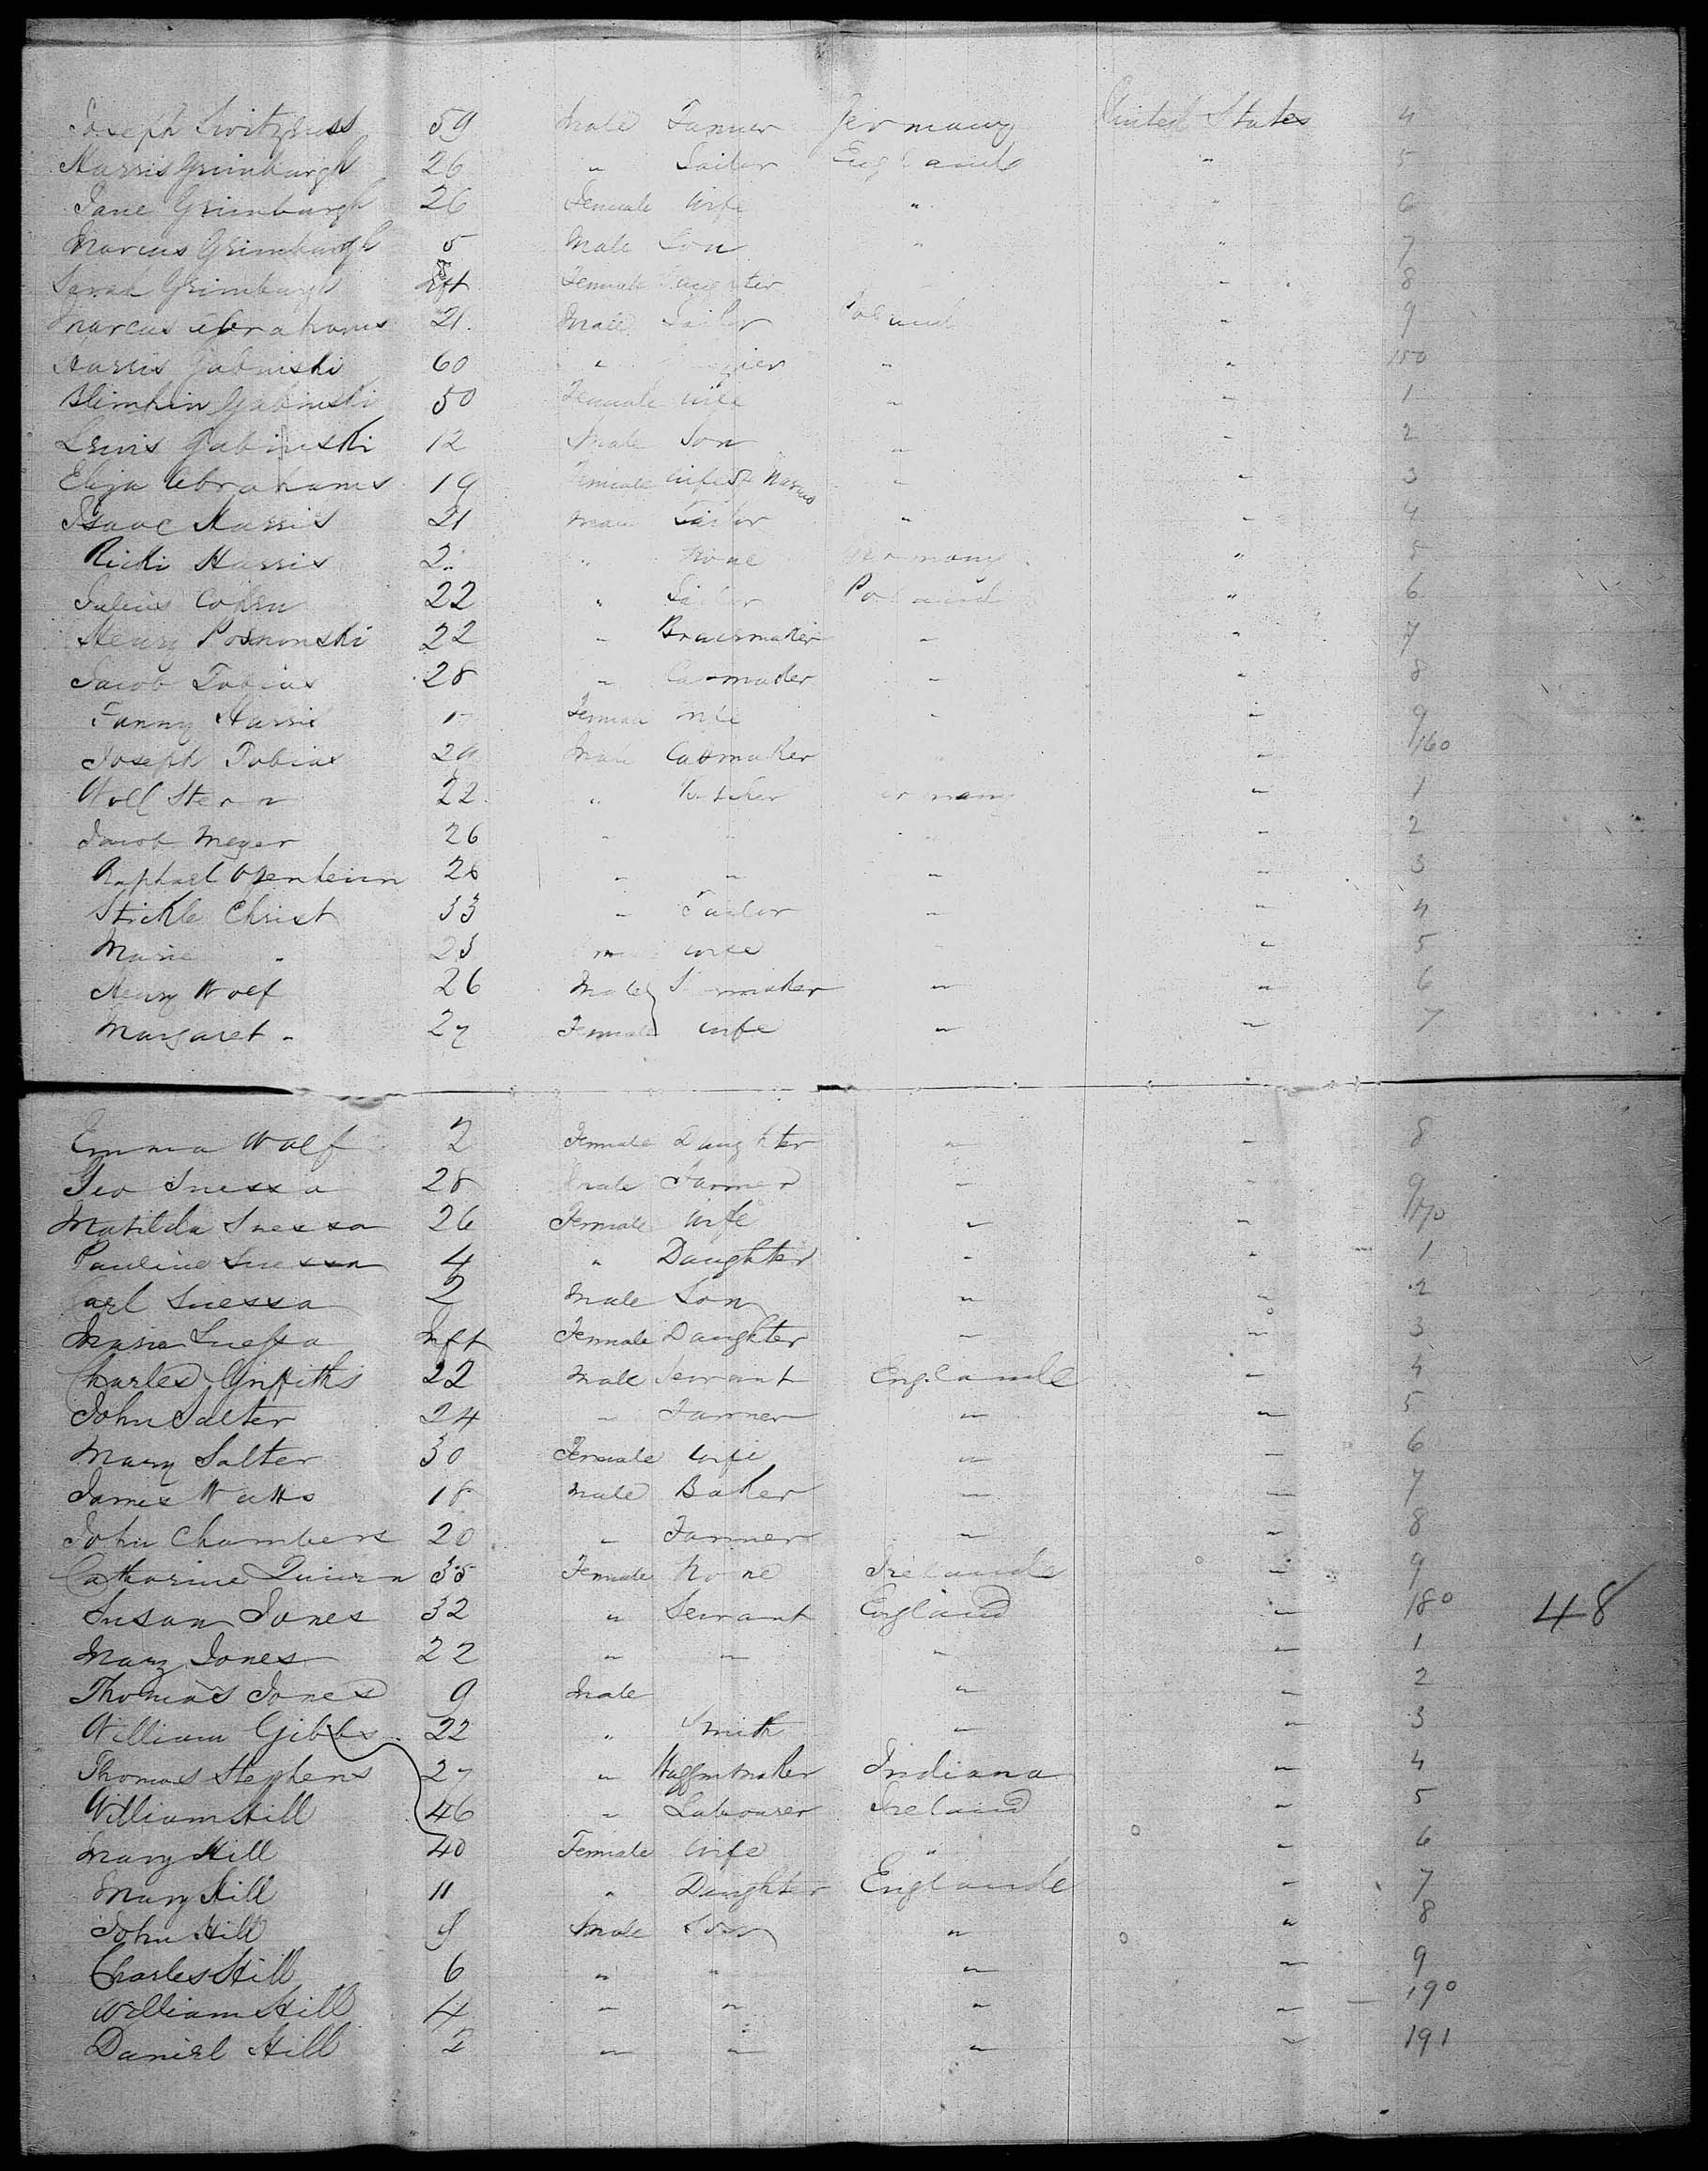 Joseph 59 Male Farmer Germany United States 4
Harris Grimburgh 26 " Tailor England " 5
Jane Grimburgh 26 Female Wife " " 6
Marcus Grimburgh 5 Male Son " " 7
Sarah Grimburgh Inft Female Daughter " 8
Marcus Abrahams 21 Male Tailor Poland " 9
Harris Gabinski 60 " " " 150
Gabinski 50 Female Wife " " 1
Lewis Gabinski 12 Male Son " " 2
Eliza Abrahams 19 Female Wife " " 3
Isaac Harris 21 Male Tailor " " 4
Ricki Harris " None Germany " 5
Julius Cohen 22 " Tailor Poland " 6
Henry Posnonski 22 " " " 7
Jacob Tobias 28 " Capmaker " " 8
Fanny Harris Female Wife " " 9
Joseph Tobias 29 Male Capmaker " " 160
Wolf Stern 22 " Butcher Germany " 1
Jacob Meyer 26 " " " " 2
Raphael Openheim 26 " " " " 3
Stickle Christ 33 " Tailor " " 4
Marie " 23 Wife " " 5
Henry Wolf 26 Male " " 6
Margaret " 27 Female Wife " " 7
Emma Wolf 2 Female Daughter " " 8
Geo Suessa 28 Male Farmer " " 9
Matilda Suessa 26 Female Wife " " 170
Pauline Suessa 4 " Daughter " " 1
Carl Suessa 2 Male Son " " 2
Maria Suessa Inft Female Daughter " " 3
Charles Griffiths 22 Male Servant England " 4
John Salter 24 " Farmer " " 5
Mary Salter 30 Female Wife " " 6
James Watts 18 Male Baker " " 7
John Chambers 20 " Farmer " " 8
Catharine Quinn 35 Female None Ireland " 9
Susan Jones 32 " Servant England " 180 48
Mary Jones 22 " " " " 1
Thomas Jones 9 Male " " 2
William Gibbs 22 " Smith " " 3
Thomas Stephens 27 " Indiana " 4
William Hill 46 " Labourer Ireland " 5
Mary Hill 40 Female Wife " " 6
Mary Hill 11 " Daughter England " 7
John Hill Male Son " " 8
Charles Hill 6 " " " " 9
William Hill 4 " " " " 190
Daniel Hill 2 " " " " 191